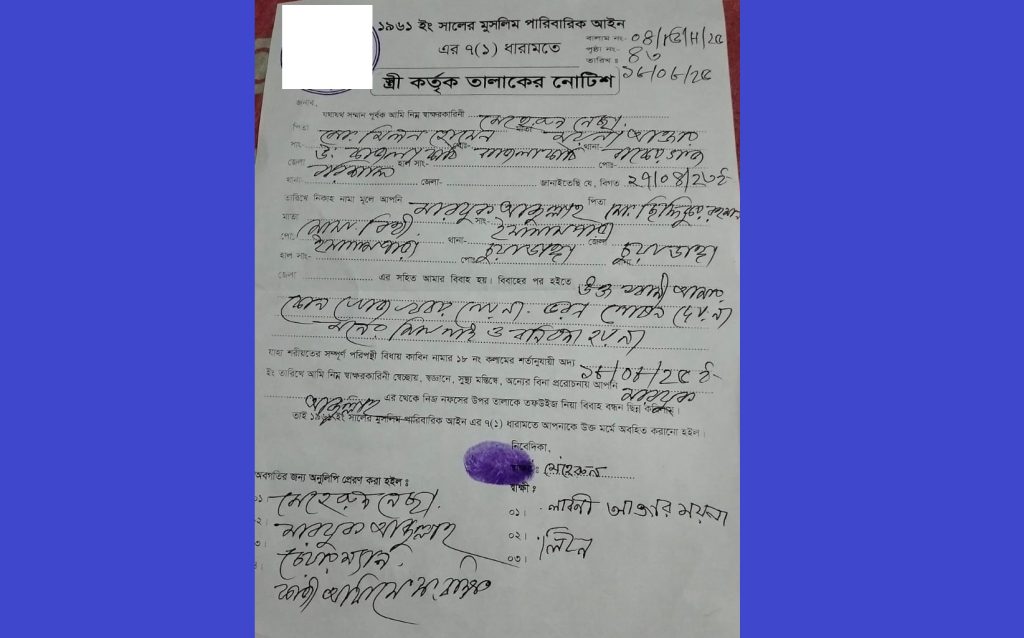 ১৯৬১ ইং সালের মুসলিম পারিবারিক আইন
এর ৭(১) ধারামতে
বালাম নং- ০৪/
পৃষ্ঠা নং- ৪৩
তারিখ : ১৮/০৮/২৫
স্ত্রী কর্তৃক তালাকের নোটিশ
জনাব,
যথাযথ সম্মান পূর্বক আমি নিম্ন স্বাক্ষরকারিনী মেহেরুন নেছা
পিতা মোঃ মিলন হোসেন মাতা
সাং- থানা-
জেলা হাল সাং- পোঃ
থানা- জেলা- জানাইতেছি যে, বিগত ২৭/০৪/২৩ ইং
তারিখে নিকাহ নামা মূলে আপনি মারযুক আব্দুল্লাহ পিতা মোঃ
মাতা সাং- ইসলামপাড়া
পোঃ ইসলামপাড়া থানা- চুয়াডাঙ্গা জেলা চুয়াডাঙ্গা
হাল সাং- পোঃ থানা
জেলা এর সহিত আমার বিবাহ হয়। বিবাহের পর হইতে উক্ত স্বামী আমার
কোন খোজ খবর নেয় না। ভরন পোষন দেয় না
মনের মিল নাই ও বনিবনা হয় না
যাহা শরীয়তের সম্পূর্ণ পরিপন্থী বিধায় কাবিন নামার ১৮ নং কলামের শর্তানুযায়ী অদ্য ১৮/০৮/২৫ ইং
ইং তারিখে আমি নিম্ন স্বাক্ষরকারিনী স্বেচ্ছায়, স্বজ্ঞানে, সুস্থ্য মস্তিষ্কে, অন্যের বিনা প্ররোচনায় আপনি মারযুক
আব্দুল্লাহ এর থেকে নিজ নফসের উপর তালাকে তফউইজ নিয়া বিবাহ বন্ধন ছিন্ন করিলাম।
তাই ১৯৬১ ইং সালের মুসলিম পারিবারিক আইন এর ৭(১) ধারামতে আপনাকে উক্ত মর্মে অবহিত করানো হইল।
নিবেদিকা,
স্বাক্ষর : মেহেরুন
অবগতির জন্য অনুলিপি প্রেরণ করা হইল :
স্বাক্ষী :
০১। মেহেরুন নেছা
০১। আক্তার ময়না
২। মারযুক আব্দুল্লাহ
০২। লিটন
৩। চেয়ারম্যান
০৩।
কাজী অফিসে সংরক্ষিত